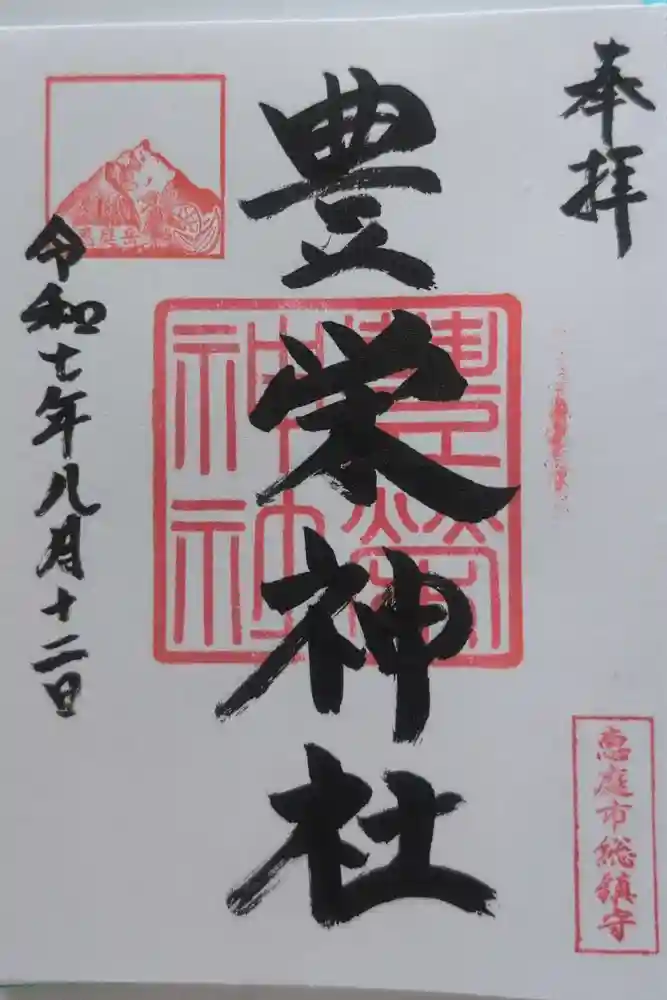 奉拝
豊栄神社
豊栄神社
恵庭市総鎮守
恵庭岳
令和七年八月十二日